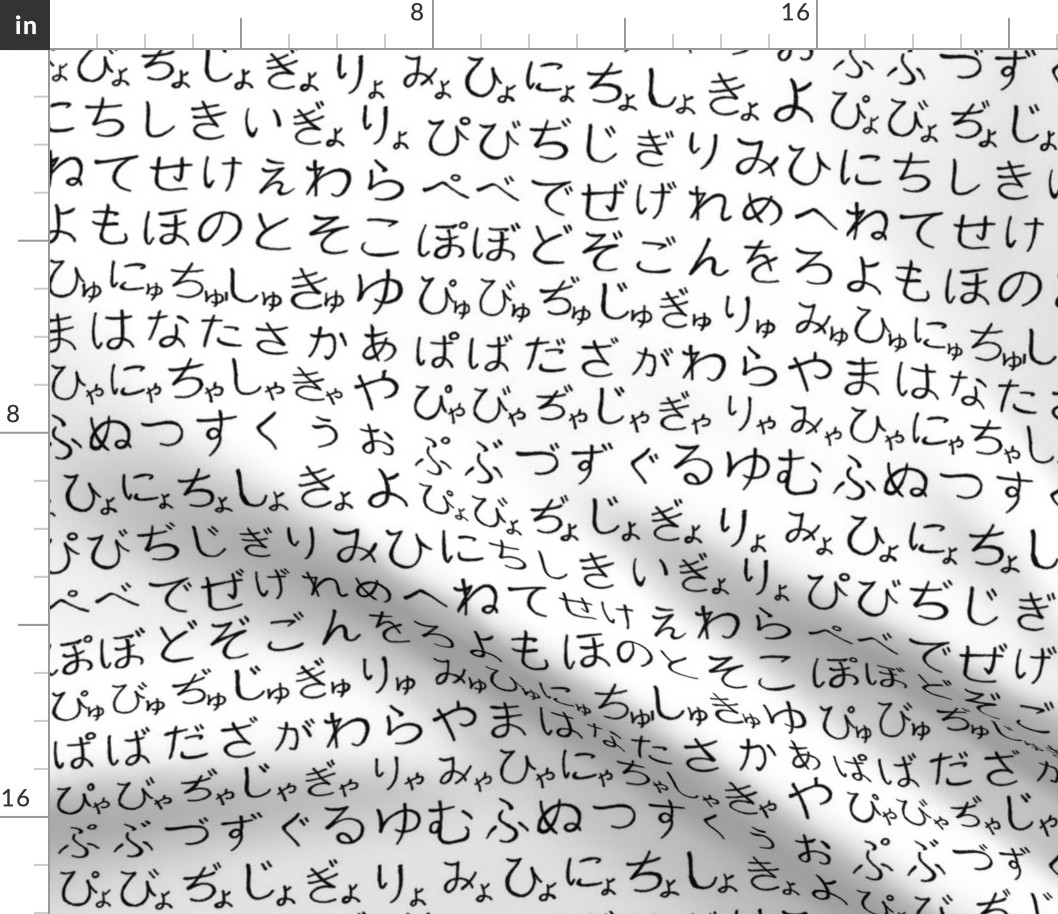 in
8
16
8
16
おふふづず
びょちょしょぎょりょみょひょにょちょしょきょよぴょびょぢょじょ
にちしきいぎょりょぴびぢじぎりみひにちしき
ねてせけえわらぺべでぜげれめへねてせけ
よもほのとそこぽぼどぞごんをろよもほの
ひゅにゅちゅしゅきゅゆぴゅびゅぢゅじゅぎゅりゅみゅひゅにゅちゅし
まはなたさかあぱばだざがわらやまはなた
ひゃにゃちゃしゃきゃやぴゃびゃぢゃじゃぎゃりゃみゃひゃにゃちゃし
ふぬつすくうおぷぶづずぐるゆむふぬつす
ひょにょちょしょきょよぴょびょぢょじょぎょりょみょひょにょちょし
ぴびぢじぎりみひにちしきいぎょりょぴびぢじぎ
ぺべでぜげれめへねてせけえわらぺべでぜげ
ぽぼどぞごんをろよもほのとそこぽぼどぞご
ぴゅびゅぢゅじゅぎゅりゅみゅひゅにゅちゅしゅきゅゆぴゅびゅぢゅ
ぱばだざがわらやまはなたさかあぱばだざ
ぴゃびゃぢゃじゃぎゃりゃみゃひゃにゃちゃしゃきゃやぴゃびゃぢゃじゃ
ぷぶづずぐるゆむふぬつすくうおぷぶづず
ぴょびょぢょじょぎょりょみょひょにょちょしょきょよ